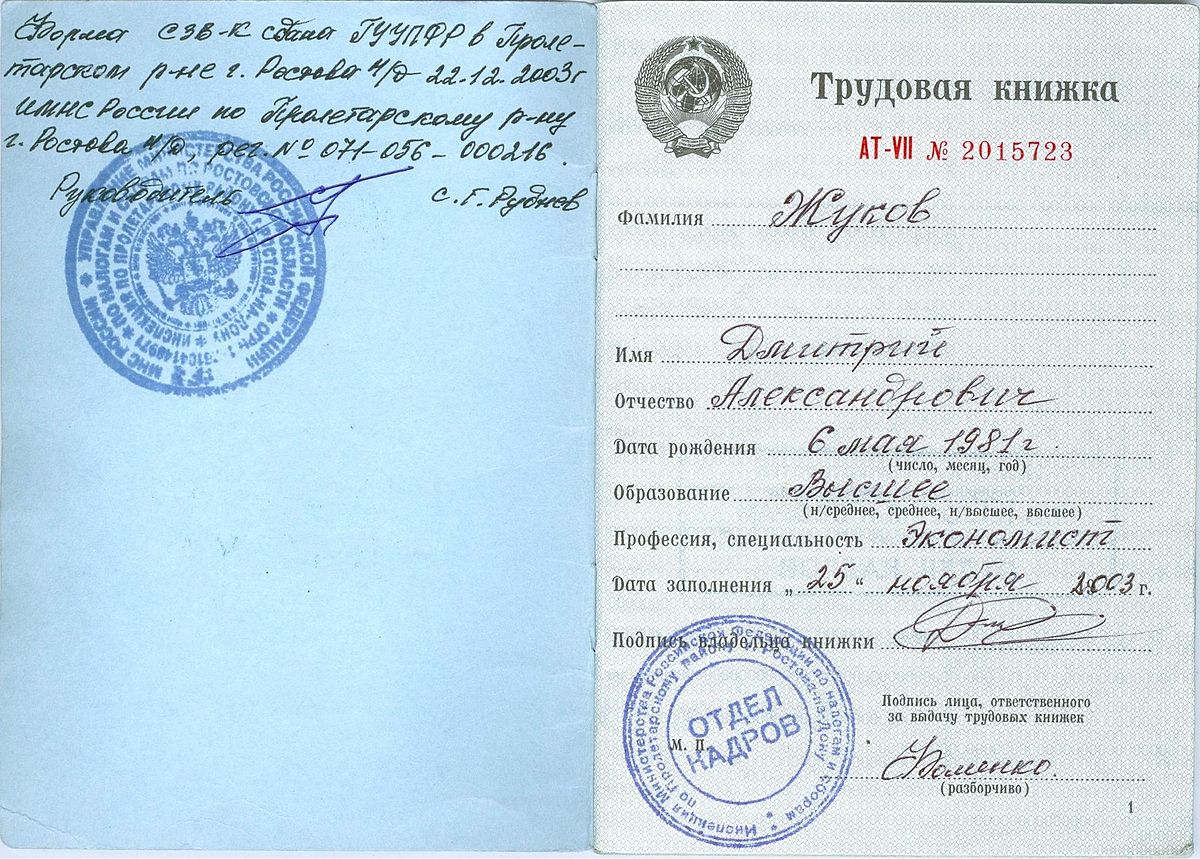 Форма СЗВ-К сдана ГУУПФР в Проле-
тарском р-не г. Ростова н/Д 22.12.2003г
ИМНС России по Пролетарскому р-ну
г. Ростова н/Д, рег. № 071-056-000216.
Руководитель С. Г. Руднев
Трудовая книжка
АТ-VII № 2015723
Фамилия Жуков
Имя Дмитрий
Отчество Александрович
Дата рождения 6 мая 1981г
(число, месяц, год)
Образование Высшее
(н/среднее, среднее, н/высшее, высшее)
Профессия, специальность Экономист
Дата заполнения „25“ ноября 2003 г.
Подпись владельца книжки
Подпись лица, ответственного
за выдачу трудовых книжек
М. П.
Фоменко.
(разборчиво)
Инспекция Министерства Российской Федерации по налогам и сборам
по Пролетарскому району г. Ростова-на-Дону
ОТДЕЛ
КАДРОВ
1